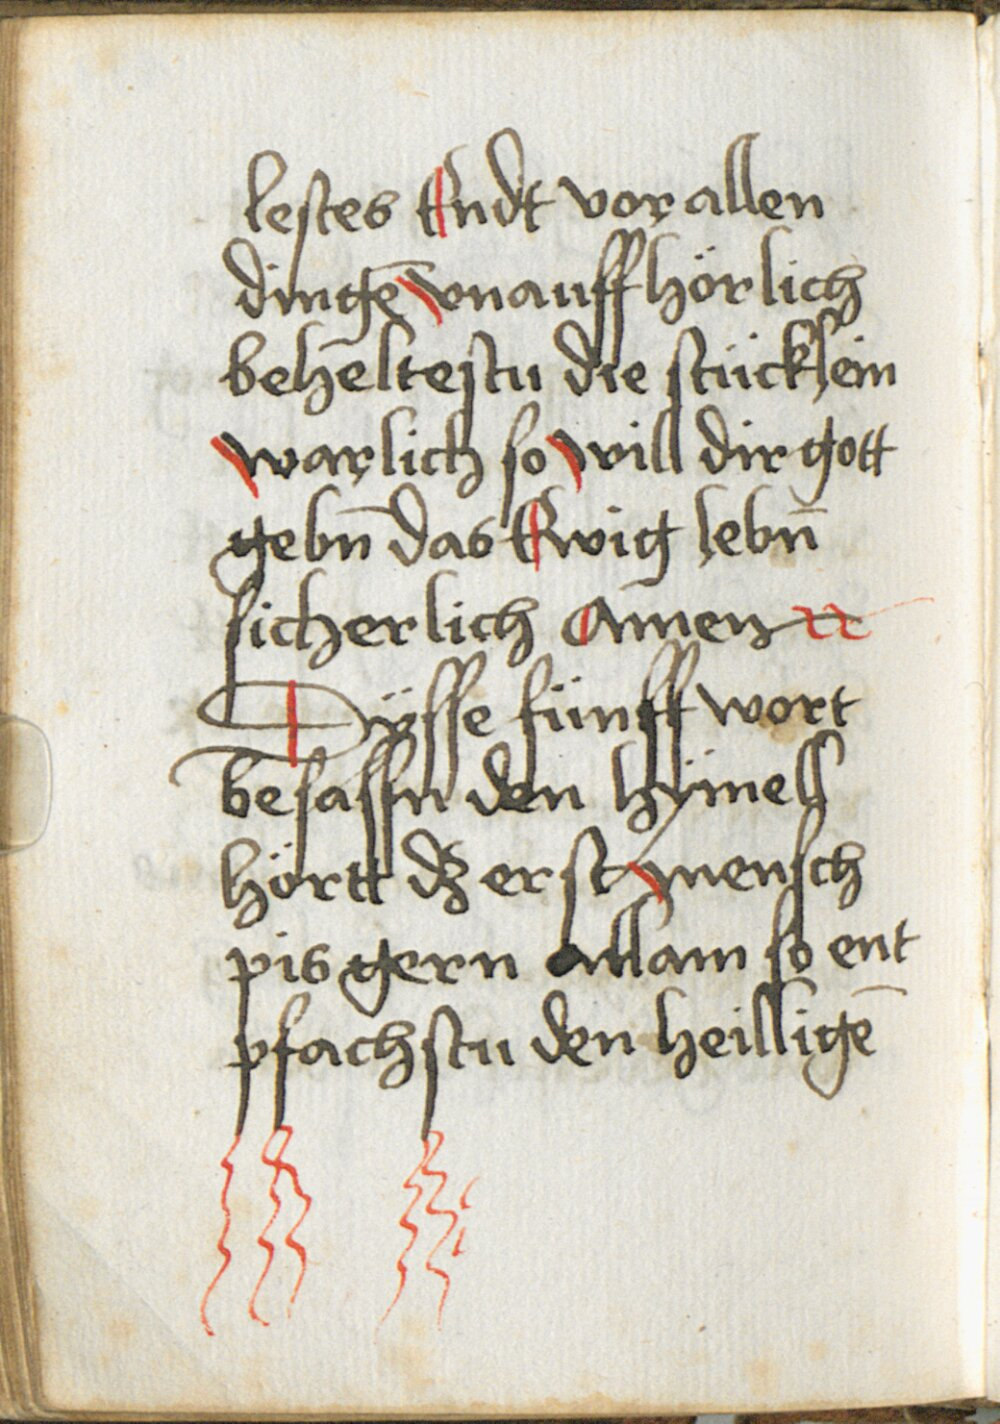 lestes Endt vor allen
dingē vnauffhörlich
behēltestu die stücklein
warlich so will dir gott
gebn̄ das Ewig lebn̄
sicherlich Amen
Dÿsse fünff wort
besassn den hÿmell
hörtt dz erst mensch
pis gern allam so ent
pfachstu den heilligē